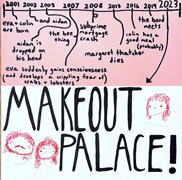 2001 2005 2005 2007 2008 2013 2014 2019 2023
eva + colin are born
and aidan
aidan is dropped on his head
the bee thing
subprime mortgage crash
margaret thatcher dies
colin has a good meal (probably)
the band meets
eva suddenly gains consciousness
(and develops a crippling fear of
crabs + lobsters)
MAKEOUT
PALACE!